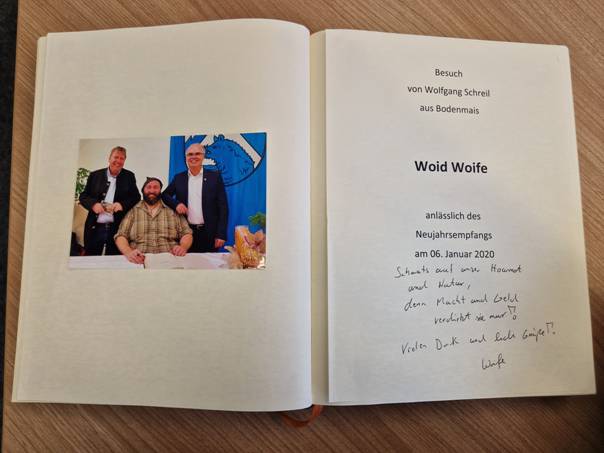 Besuch
von Wolfgang Schreil
aus Bodenmais
Woid Woife
anlässlich des
Neujahrsempfangs
am 06. Januar 2020
Schauts auf unser Hoamat
und Natur,
denn Macht und Geld
verdirbt sie nur!
Vielen Dank und liebe Grüße!
Woife